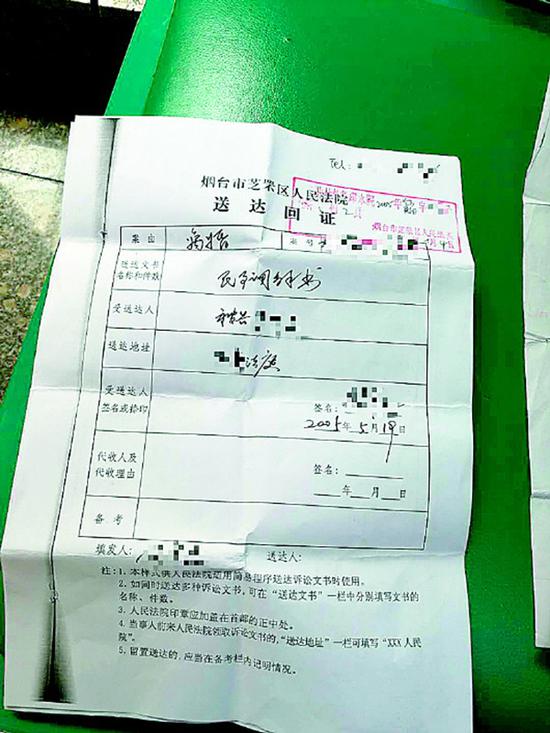 Tel:
烟台市芝罘区人民法院
送达回证
案由
离婚
案号
送达文书
名称和件数
民事调解书
受送达人
送达地址
法庭
受送达人
签名或捺印
签名:
2005年5月19日
代收人及
代收理由
签名:
年 月 日
备考
填发人:
送达人:
注:1. 本样式供人民法院适用简易程序送达诉讼文书时使用。
2. 如同时送达多种诉讼文书,可在“送达文书”一栏中分别填写文书的
名称、件数。
3. 人民法院印章应加盖在首部的正中处。
4. 当事人前来人民法院领取诉讼文书的,“送达地址”一栏可填写“XXX人民法
院”。
5. 留置送达的,应当在备考栏内记明情况。